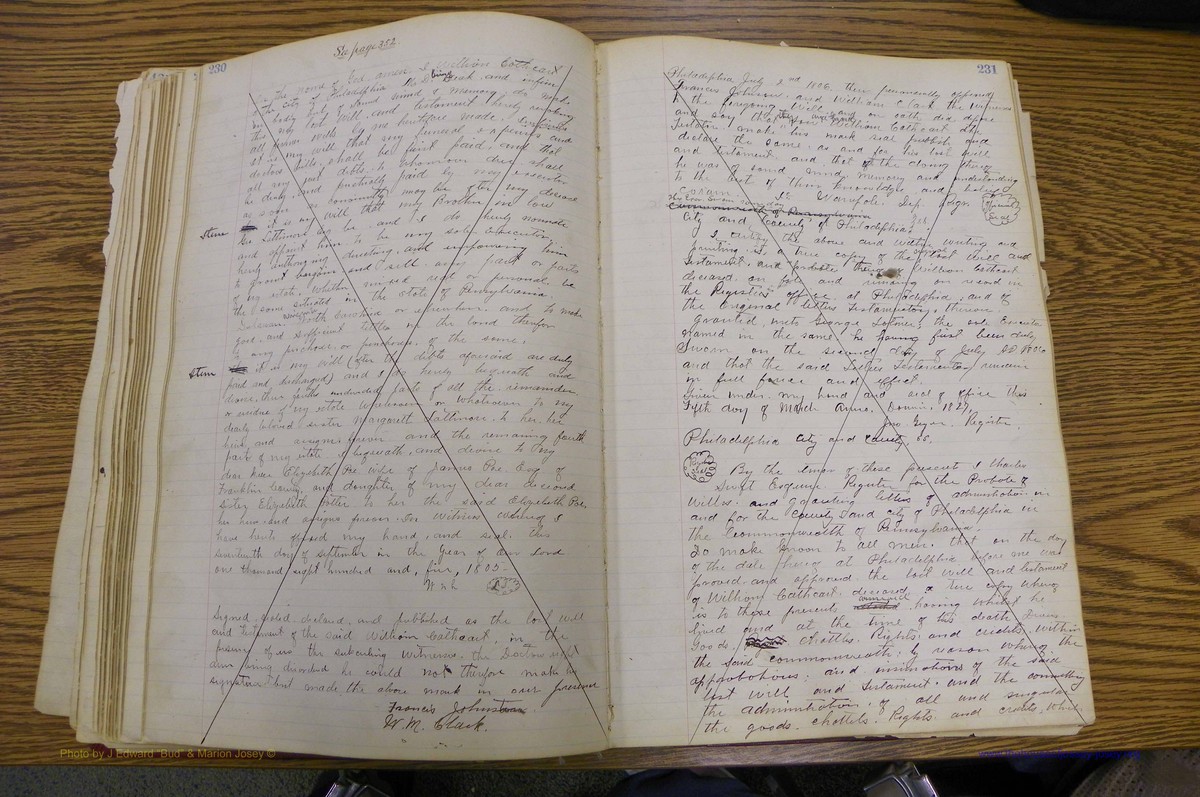 See page 352.
230
In the name of God, amen, I William Cathcart
of the city of Philadelphia the being weak and infirm
in body but of sound mind & memory, do make
this my last will and testament hereby revoking
all former wills by me heretofore made.
it is my will that my funeral expenses and
doctors bills, shall be first paid, and that
all my just debts, to whomsoever due shall
be duly and punctually paid by my executor
as soon as conveniently may be after my decease
Item it is my will that my Brother in law
be and I do hereby nominate
and appoint him to be my sole Executor
hereby authorizing directing, and impowering him
to grant bargain and sell any part or parts
of my estate, whether mixed real or personal, be
the same situated in the state of Pennsylvania
Delaware North Carolina or elsewhere and to make
good and sufficient titles in the land therefor
to any purchaser or purchasers of the same.
Item it is my will (after the debts aforesaid are duly
paid and discharged) and I do hereby bequeath and
devise three fourths undivided parts of all the remainder
or residue of my estate wheresoever or whatsoever to my
dearly beloved sister Margaret Lattimore to her, her
heirs, and assigns forever and the remaining fourth
part of my estate I bequeath, and devise to my
dear niece Elizabeth Poe wife of James Poe, Esq of
Franklin County and daughter of my dear deceased
sister Elizabeth Potter to her the said Elizabeth Poe,
her heirs and assigns forever. In Witness whereof I
have hereto affixed my hand, and seal, this
seventeenth day of September in the year of our Lord
one thousand eight hundred and, five, 1805-
Signed, sealed, declared, and published as the last will
and testament of the said William Cathcart, in the
presence of us the subscribing witnesses. the Doctors right
arm being disordered he could not therefore make his
signature but made the above mark in our presence
Francis Johnston
W. M. Clark.
231
Philadelphia July 2nd 1806. then personally appeared
Francis Johnson, and William Clark the witnesses
to the foregoing Will and on oath did depose
and say that they saw William Cathcart the
Testator make his mark seal publish and
declare the same, as and for his last will
and testament, and that at the doing thereof
he was of sound mind, memory and understanding
to the best of their knowledge and belief,
Coram I. Wampole Dep. Regr
Official Seal
Commonwealth of Pennsylvania
City and County of Philadelphia
I certify the above and within writing and
printing is a true copy of the last Will and
Testament, and probate thereof William Cathcart
deceased on file and remaining on record in
the Register's office at Philadelphia, and of
the original letters testamentary thereon
granted, unto George Latimer, the sole Executor
named in the same he having first been duly
Sworn on the second day of July AD 1806
and that the said letters Testamentary remain
in full force and effect.
Given under my hand and seal of office this
Fifth day of March Anno, Domini, 1827
Jno. Geyer, Register.
Philadelphia City and County, ss.
By the tenor of these presents I Charles
Swift Esquire. Register for the Probate of
Wills. and Granting letters of administration in
and for the County and city of Philadelphia in
the Commonwealth of Pennsylvania.
Do make known to all men, that on the day
of the date hereof at Philadelphia before me was
proved and approved the last will and testament
of William Cathcart, deceased, a true copy whereof
is to these presents annexed having whilst he
lived and at the time of his death Divers
Goods. chattles. Rights. and credits within
the said commonwealth: by reason whereof the
approbations: and insinuations of the said
last will and Testament. and the committing
the administration of all and singular
the goods. chattels. Rights. and credits, which
Photo by J Edward "Bud" & Marion Josey ©